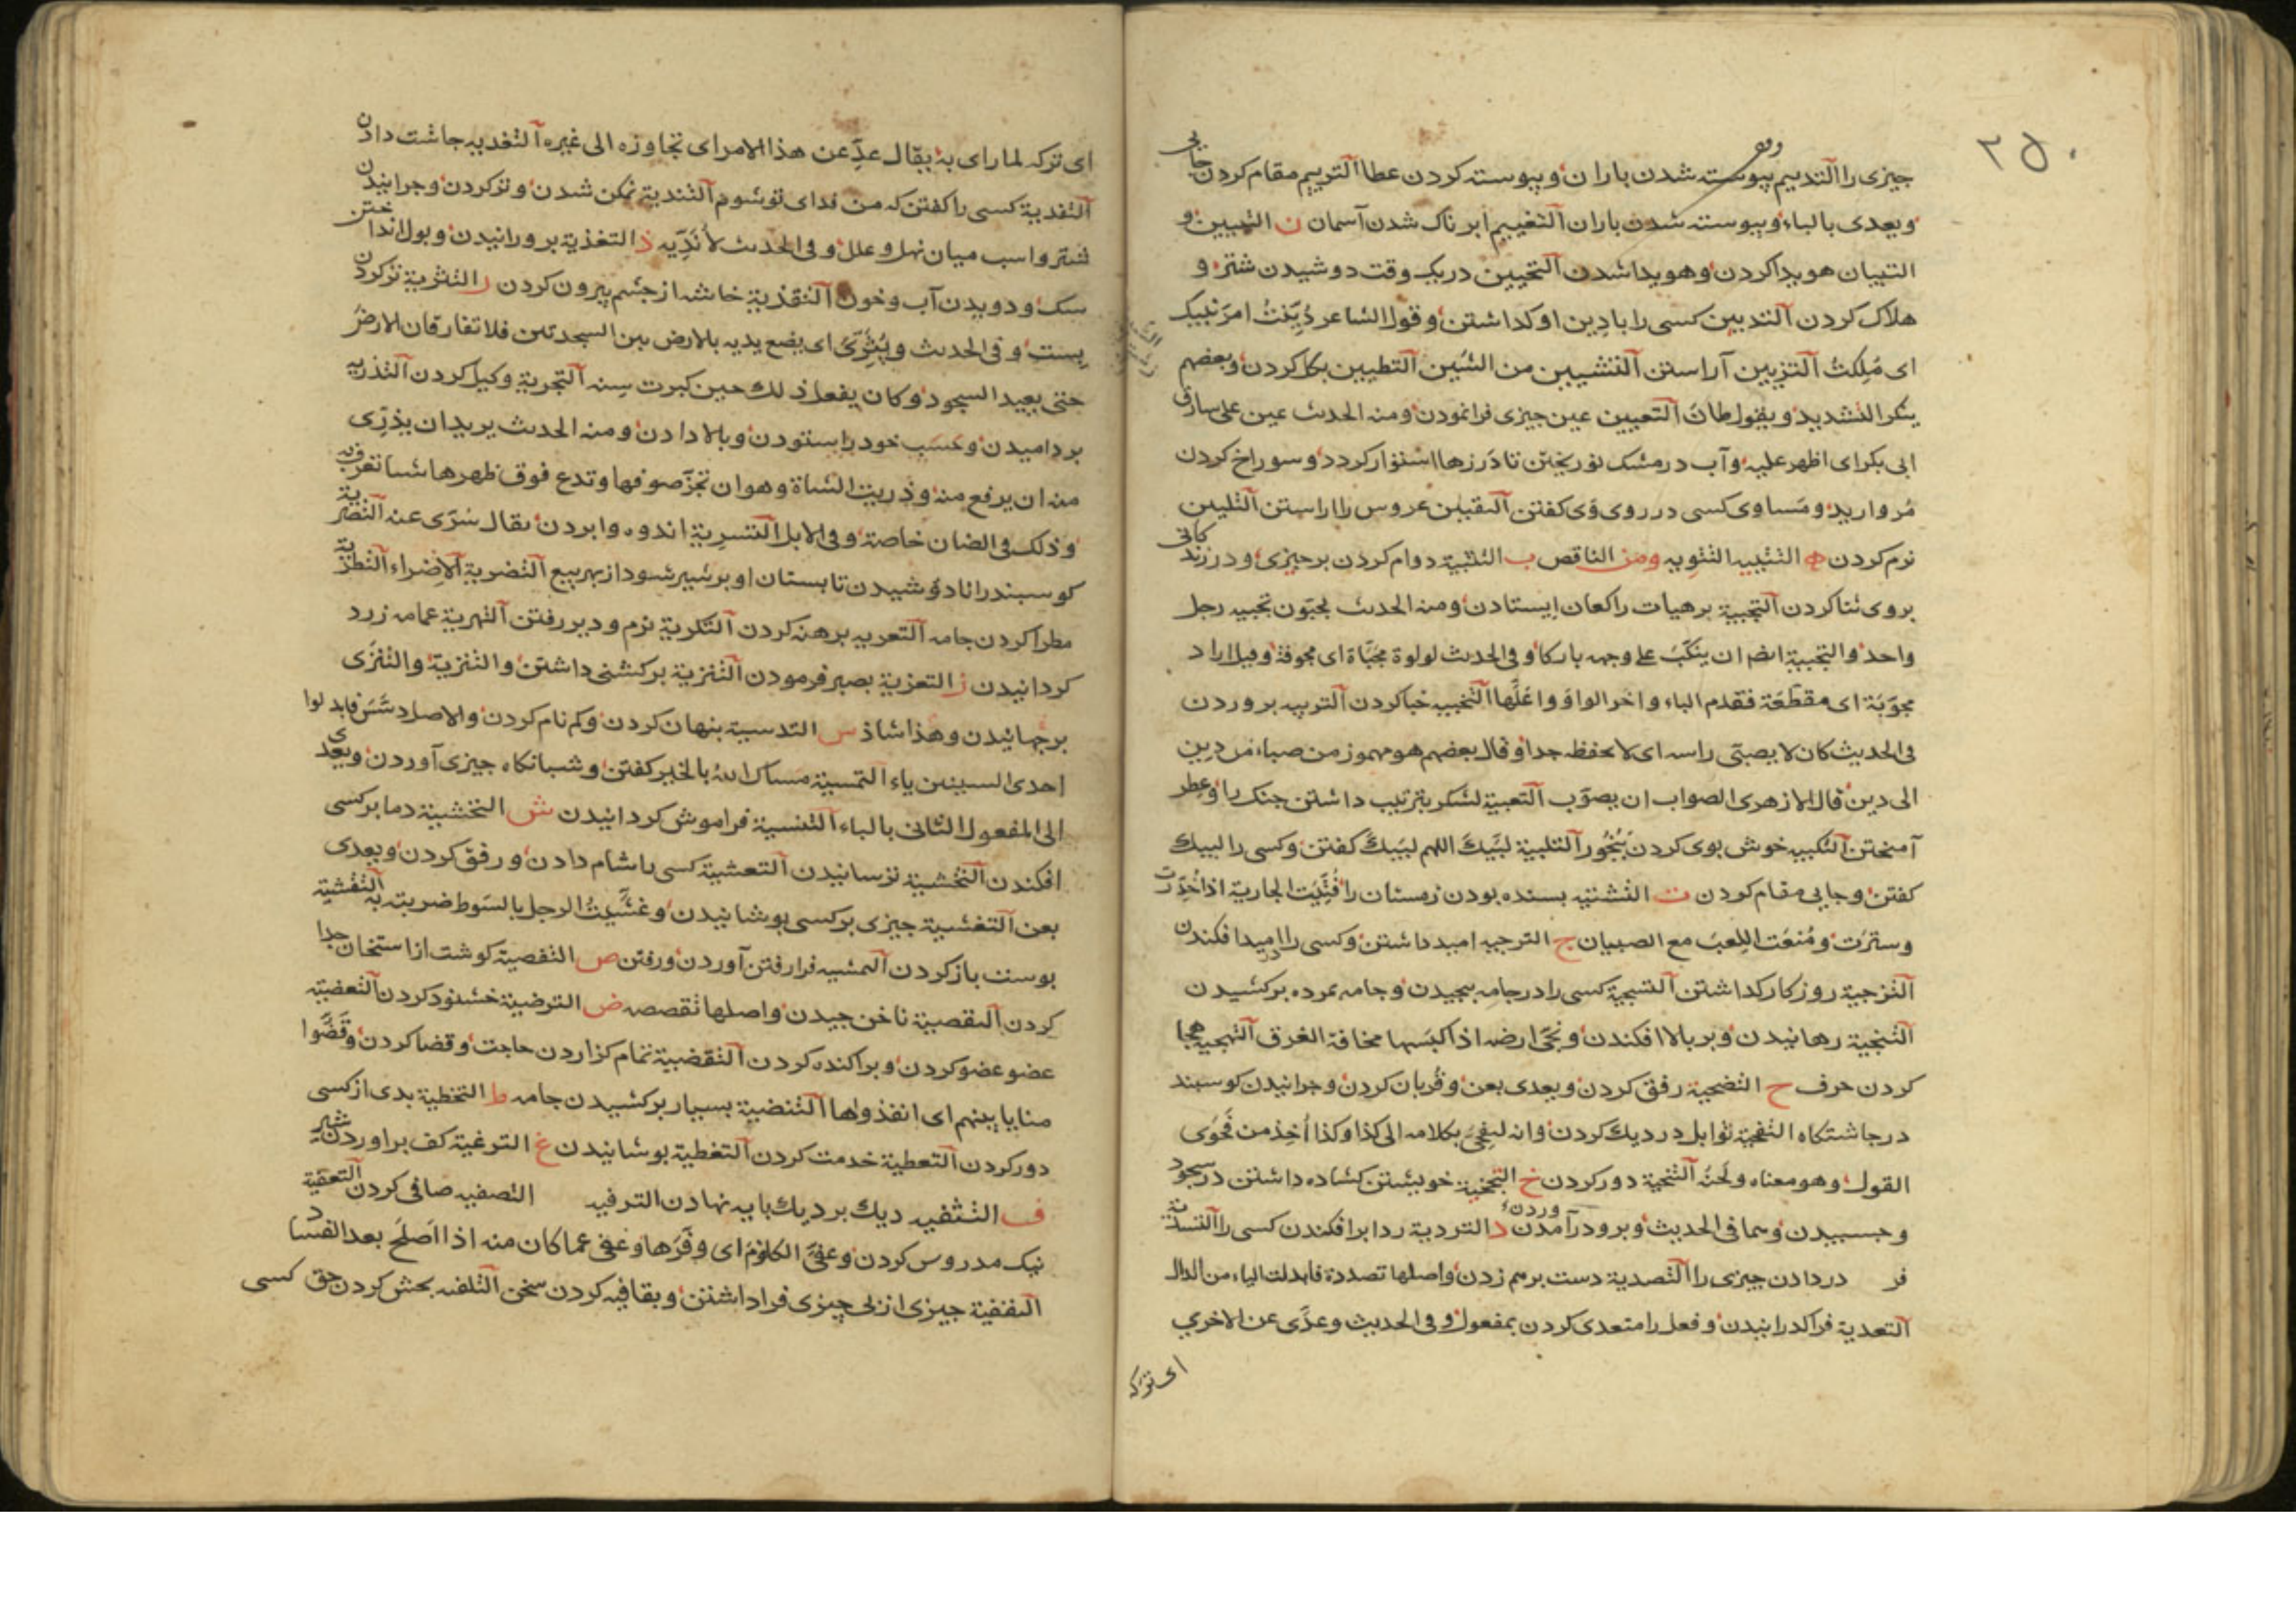 ۲۵۰
چیزی را التدییم پیوسته شدن باران و پیوسته کردن عطا التریيم مقام کردن جایی
ویعدی بالباء و پیوسته شدن باران التغییم ابر ناک شدن آسمان ن التبیین و
التبیان هویدا کردن و هویدا شدن التحیین دریک وقت دوشیدن شتر و
هلاک کردن التدیین کسی را بادین او کذاشتن و قول الشاعر دُیّنتُ امر بنیک
ای مُلِکتُ التزیین آراستن التشیین من الشین التطیین بکل کردن و بعضهم
ینکر التشدید و یقول طانَ التعیین عین چیزی فرا نمودن ومنه الحدیث عین علی سارق
ابی بکر ای اظهر علیه و آب در مشک نو ریختن تا درزها استوار کردد و سوراخ کردن
مروارید و مساوی کسی در روی وَی کفتن التقیین عروس را اراستن التلیین
نرم کردن ه التتییه التتویه ومن الناقص ب التثبیة دوام کردن بر چیزی و در زندکانی
بروی ثنا کردن التجبیة بر هیات راکعان ایستادن ومنه الحدیث یجبون تجبیه رجل
واحد والتجبیة ایضا ان ینکبّ علی وجهه بارکا و فی الحدیث لولوة مجبّاة ای مجوفة و قیل اراد
مجوّبَة ای مقطّعَة فقدم الباء واخر الواو واعلّها التخبیه خبا کردن التربیه پروردن
فی الحدیث کان لا یصبّی راسه ای لا یخفظه جدا و قال بعضهم هو مهموز من صبا من دین
الی دین قال الازهری الصواب ان یصوّب التعبیة لشکر بترتیب داشتن جنک را و عطر
آمیختن التکبیه خوش بوی کردن ببُخُور التلبیة لبّیک اللهم لبّیک کفتن و کسی را لبیک
کفتن و جایی مقام کردن ت التشتیه بسنده بودن زمستان را فُتّیَت الجاریة اذا خُدّرت
وستّرَت و مُنعَت اللِعبَ مع الصبیان ج الترجیه امید داشتن و کسی را در امید افکندن
التزجیة روزکار کذاشتن التسجیة کسی را در جامه پیچیدن و جامه بمرده برکشیدن
التنجیة رهانیدن و بر بالا افکندن و نجّی ارضه اذا کبسها مخافة الغرق التهجیه هجا
کردن حرف ح التضحیة رفق کردن و یعدی بعن و قُربان کردن و چرانیدن کوسپند
در چاشتکاه التفحیة توابل در دیک کردن وانه لیفحّی بکلامه الی کذا وکذا أُخِذ من فحوی
القول و هو معناه ولحنه التنحیة دور کردن خ التجخیة خویشتن کشاده داشتن در سجود
و چسپیدن و هما فی الحدیث و برودرآمدن د التردیة ردا برافکندن کسی را التسدیة
فر دردادن چیزی را التصدیة دست برهم زدن و اصلها تصددة فابدلت الیاء من الدال
التعدیة فراکدرانیدن و فعل را متعدی کردن بمفعول و فی الحدیث وعدّی عن الاخری
ای ترکه
ای ترکه لما رای به یقال عدِّ عن هذا الامر ای تجاوزه الی غیره التغدیه چاشت دادن
التفدیة کسی را کفتن که من فدای تو شوم التندیة نمکن شدن و تر کردن و چرانیدن
شتر و اسب میان نهل و علل و فی الحدیث لأُندّیه ذ التغذیة پرورانیدن و بول انداختن
سک و دویدن آب و خون التقذیة خاشه از چشم بیرون کردن ر التثریة تر کردن
پست و فی الحدیث ویُثرّی ای یضع یدیه بالارض بین السجدتین فلا تفارقان الارض
حتی یعید السجود و کان یفعل ذلک حین کبرت سنه التجریة وکیل کردن التذریه
بردامیدن و حَسَب خود را ستودن و بالا دادن ومنه الحدیث یرید ان یذرّی
منه ان یرفع منه و ذریت الشاة و هو ان تجزّ صوفها و تدع فوق ظهرها شیئا تعرف به
و ذلک فی الضان خاصة و فی الابل التسریة اندوه وابردن یقال سُرّی عنه التصریة
کوسپند را نادوشیدن تا پستان او پر شیر شود از بهر بیع التضریة الاِضراء التطریة
مطرا کردن جامه التعریه برهنه کردن التکریة نرم و دیر رفتن التهریة عمامه زرد
کردانیدن ز التعزیة بصبر فرمودن التنزیة برکشنی داشتن و التنزیة والتنزّی
برجهانیدن و هذا شاذ س التدسیة پنهان کردن و کم نام کردن و الاصل دسّس فابدلوا
احدی السینین یاء التمسیة مساک الله بالخیر کفتن و شبانکاه چیزی آوردن و یعدی
الی المفعول الثانی بالباء التنسیة فراموش کردانیدن ش التحشیة دما بر کسی
افکندن التخشیة ترسانیدن التعشیة کسی را شام دادن و رفق کردن و یعدی
بعن التغشیة چیزی بر کسی پوشانیدن و غشّیتُ الرجل بالسوط ضربته به التفشیة
پوست باز کردن التمشیه فرارفتن آوردن و رفتن ص التفصیة کوشت از استخان جدا
کردن التقصیة ناخن چیدن و اصلها تقصصه ض الترضیة خشنود کردن التعضیة
عضو عضو کردن و پراکنده کردن التقضیة تمام کزاردن حاجت و قضا کردن و قَضَّوا
منایا بینهم ای انفذوها التنضیة بسیار برکشیدن جامه ط التخطیة بدی از کسی
دور کردن التعطیة خدمت کردن التغطیة پوشانیدن غ الترغیة کف برآوردن شیر
ف التثفیه دیک بر دیک پایه نهادن الترفیه التصفیه صافی کردن التعفیة
نیک مدروس کردن و عفّی الکلومَ ای وفّرها و عفی عما کان منه اذا اَصلَحَ بعد الفساد
التقفیة چیزی از پی چیزی فراداشتن و بقافیه کردن سخن التلفیه بخش کردن حق کسی